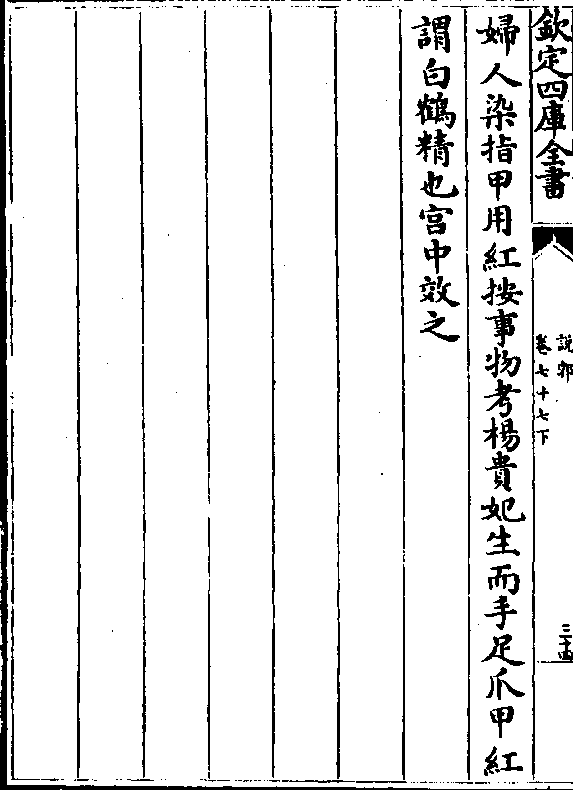 欽定四庫全書
說郛
卷七十七下
三十四
婦人染指甲用紅按事物考楊貴妃生而手足爪甲紅
謂白鶴精也宮中效之